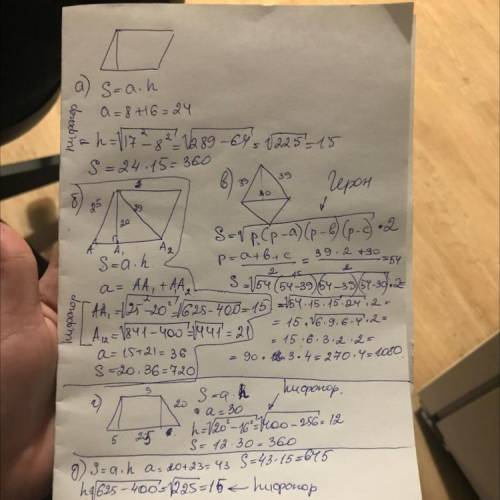 а) S = a · h
a = 8 + 16 = 24
h = √17² - 8² = √289 - 64 = √225 = 15
S = 24 · 15 = 360
пифагор
б)
25
29
20
A A₁ A₂
S = a · h
a = AA₁ + AA₂
AA₁ = √25² - 20² = √625 - 400 = 15
A₁₂ = √841 - 400 = √441 = 21
a = 15 + 21 = 36
S = 20 · 36 = 720
пифагор
в)
39 39
30
Герон
S = √p(p-a)(p-b)(p-c) · 2
p = a+b+c/2 = 39·2+30/2 = 54
S = √54(54-39)(54-39)(54-30) · 2 =
= √54·15·15·24 · 2 =
= 15 · √6·9·6·4 · 2 =
= 15 · 6 · 3 · 2 · 2 =
= 90 · 3 · 4 = 270 · 4 = 1080
г)
20
5 25
S = a · h
a = 30
пифагор.
h = √20² - 16² = √400 - 256 = 12
S = 12 · 30 = 360
д) S = a · h a = 20 + 23 = 43 S = 43 · 15 = 645
h = √625 - 400 = √225 = 15 ← пифагор